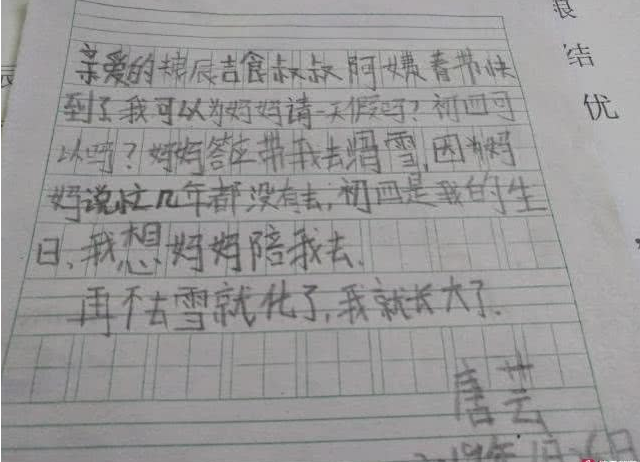 亲爱的辰吉食叔叔阿姨春节快
到了我可以为妈妈请一天假吗?初四可
以吗?妈妈答应带我去滑雪,因为妈
妈说忙几年都没有去,初四是我的生
日,我想妈妈陪我去.
再不去雪就化了,我就长大了.
唐芸
结
优